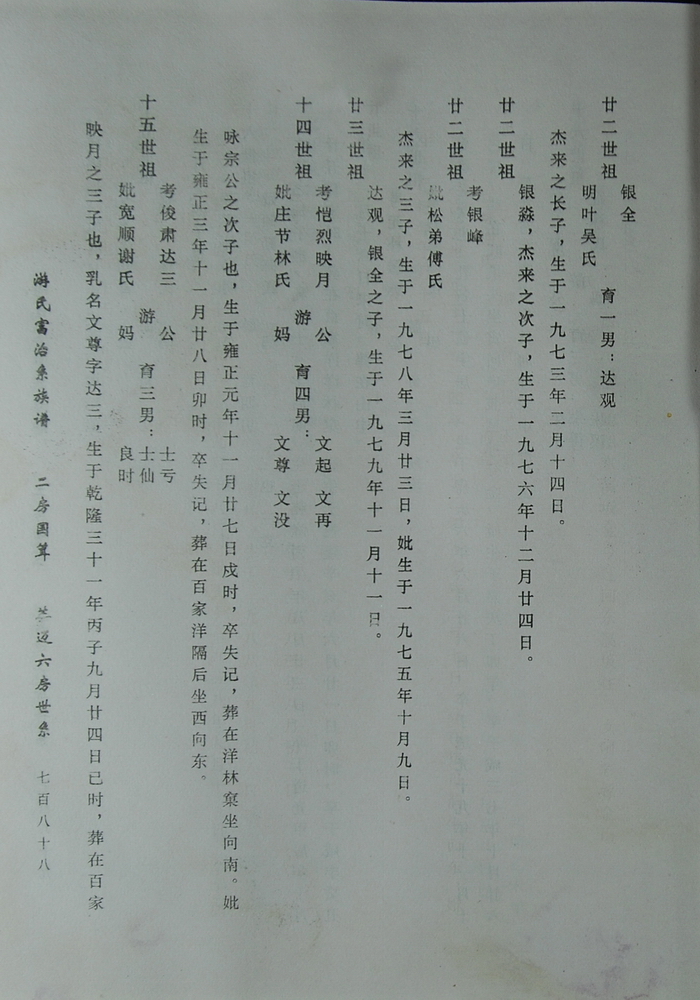 廿二世祖
银全
明叶吴氏
育一男：达观
杰来之长子，生于一九七三年二月十四日。
廿二世祖
银淼，杰来之次子，生于一九七六年十二月廿四日。
廿二世祖
考银峰
妣松弟傅氏
杰来之三子，生于一九七八年三月廿三日，妣生于一九七五年十月九日。
廿三世
达观，银全之子，生于一九七九年十一月十一日。
十四世祖
考恺烈映月 公
游
妣庄节林氏 妈
育四男：
文起 文再
文尊 文没
咏宗公之次子也，生于雍正元年十一月廿七日戍时，卒失记，葬在洋林窠坐向南。妣
生于雍正三年十一月廿八日卯时，卒失记，葬在百家洋隔后坐西向东。
十五世祖
考俊肃达三 公
游
妣宽顺谢氏 妈
育三男：
士亏
士仙
良时
映月之三子也，乳名文尊字达三，生于乾隆三十一年丙子九月廿四日巳时，葬在百家
游氏富治系族谱 二房国 六房世系 七百八十八